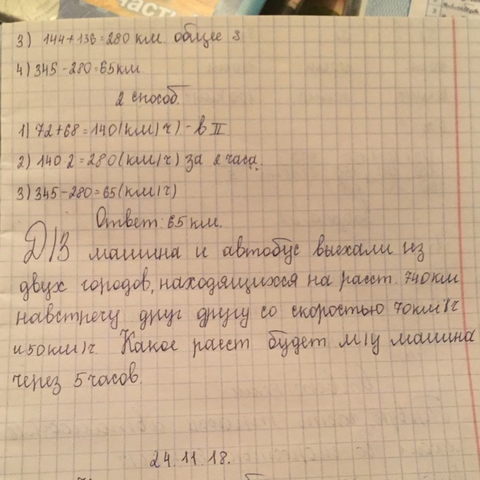 3) 144+136=280 км общее 3
4) 345-280=65км
2 способ.
1) 72+68=140(км/ч) - в II
2) 140 2=280(км/ч) за 2 часа.
3) 345-280=65(км/ч)
Ответ: 65 км.
Д/З машина и автобус выехали из
двух городов, находящихся на расст. 740км
навстречу друг другу со скоростью 70км/ч
и 50км/ч. Какое расст будет м/у машина
через 5 часов.
24.11.18.